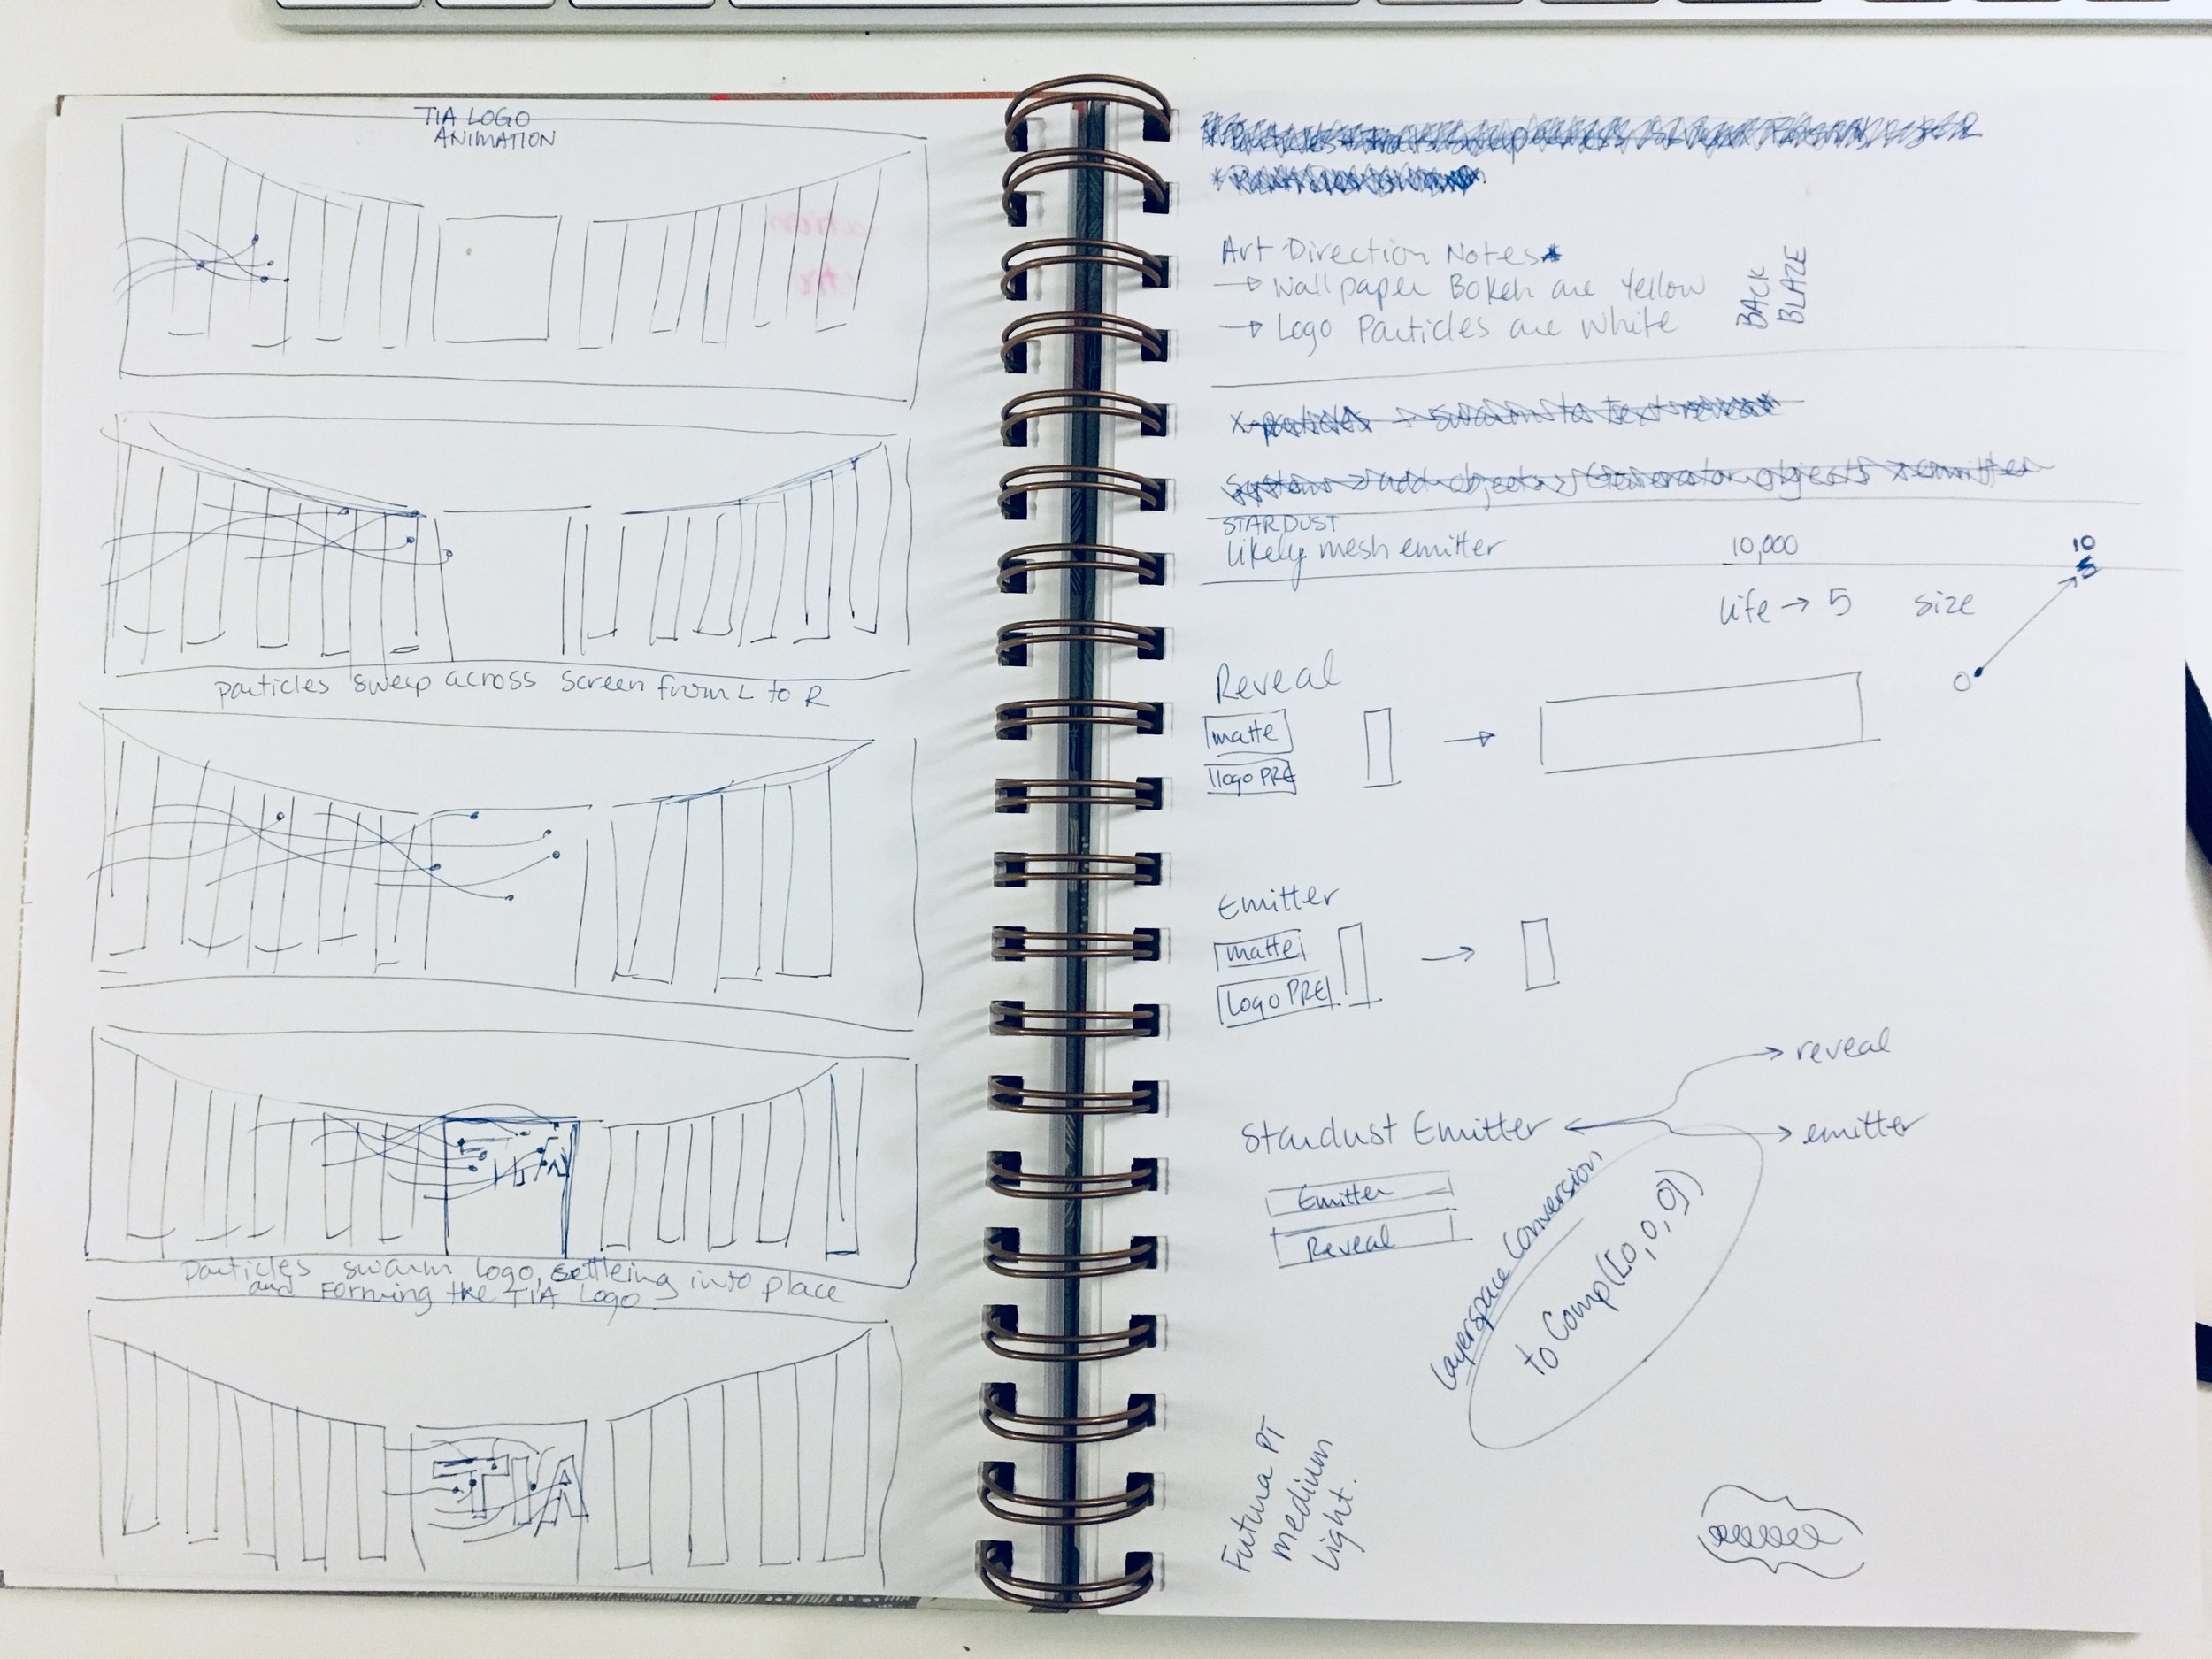 TIA LOGO
ANIMATION
particles sweep across screen from L to R
Particles swarm logo, settleing into place
and Forming the TIA Logo
TIA
Art Direction Notes
→ Wallpaper Bokeh are Yellow
→ Logo Particles are White
BACK
BLAZE
x-particles → swarm to text reveal
System > add objects > Generator objects xemitter
STARDUST
likely mesh emitter 10,000
life → 5 size
0
10
Reveal
matte
logo PRE
Emitter
matte
Logo PRE
reveal
Stardust Emitter
emitter
Emitter
Reveal
layerspace Conversion
to Comp([0,0,0])
Futura PT
medium
Light.